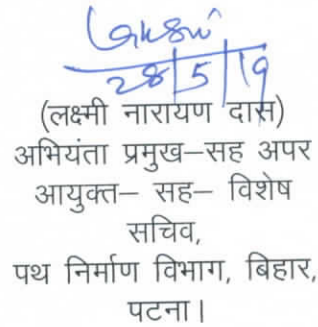 28/5/19
(लक्ष्मी नारायण दास)
अभियंता प्रमुख–सह अपर
आयुक्त– सह– विशेष
सचिव,
पथ निर्माण विभाग, बिहार,
पटना।